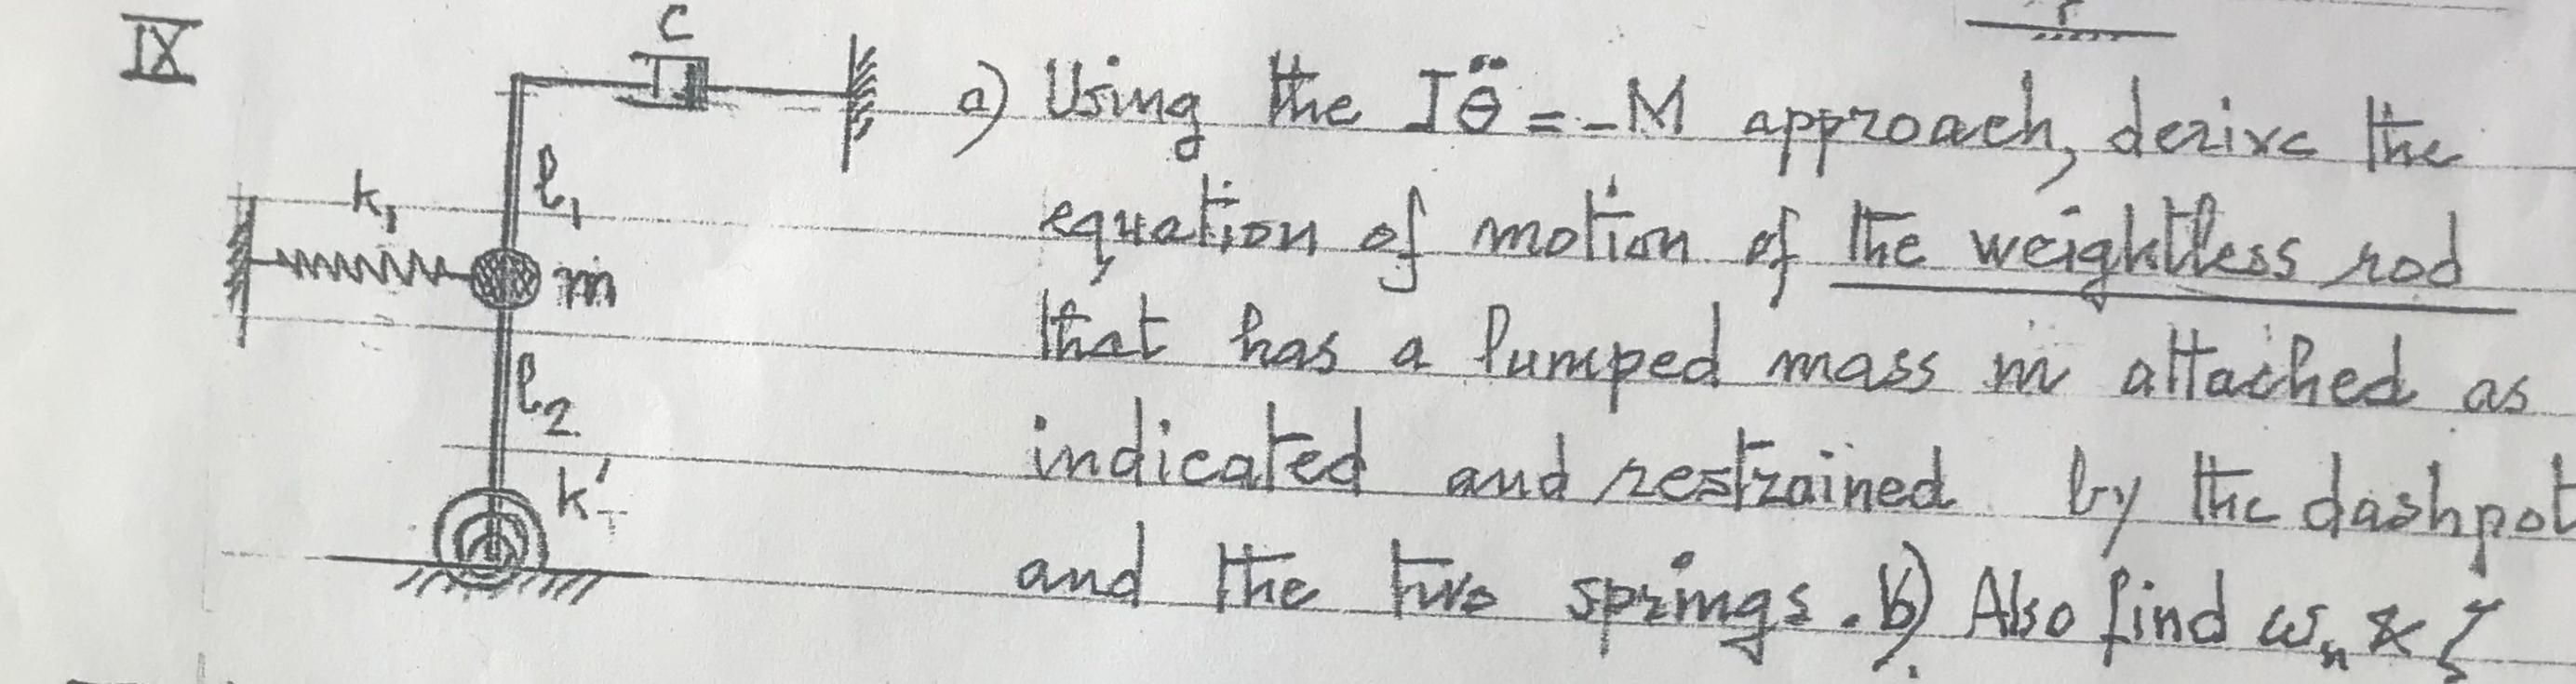 IX
C
r
a) Using the Iθ̈ = -M approach, derive the
k₁
l₁
equation of motion of the weightless rod
m
that has a lumped mass m attached as
l₂
indicated and restrained by the dashpot
k'T
and the two springs. b) Also find ωₙ & ζ